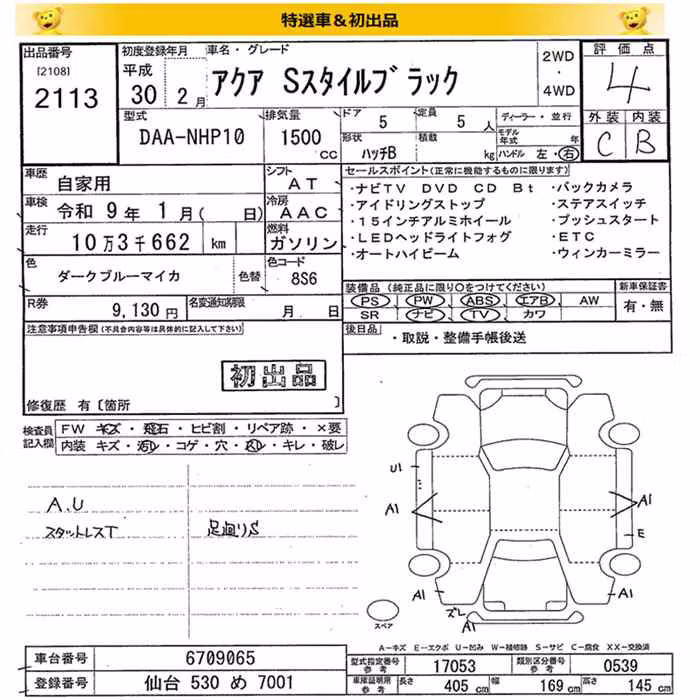 特選車＆初出品
出品番号
[2108]
2113
初度登録年月
平成
30 2月
車名・グレード
アクア Sスタイルブラック
2WD
・
4WD
評価点
4
外装 内装
C B
型式
DAA-NHP10
排気量
1500
cc
ドア
5
定員
5人
形状
ハッチB
積載
kg
ディーラー・並行
モデル年式
年
ハンドル 左・右
車歴
自家用
シフト
AT
車検
令和 9年 1月( 日)
冷房
AAC
走行
10万3千662 km
燃料
ガソリン
色
ダークブルーマイカ
色替
色コード
8S6
R券
9,130円
名変通知期限
月 日
セールスポイント(正常に機能するものに限ります)
・ナビTV DVD CD Bt ・バックカメラ
・アイドリングストップ ・ステアスイッチ
・15インチアルミホイール ・プッシュスタート
・LEDヘッドライトフォグ ・ETC
・オートハイビーム ・ウィンカーミラー
装備品(純正品に限り○をつけてください)
PS PW ABS エアB AW
SR ナビ TV カワ
新車保証書
有・無
後日品
・取説・整備手帳後送
注意事項申告欄(不具合内容等は具体的に記入して下さい)
初出品
修復歴 有〔箇所 〕
検査員
記入欄
FW キズ・飛石・ヒビ割・リペア跡・×要
内装 キズ・汚レ・コゲ・穴・スレ・キレ・破レ
A.U
スタットレスT 足廻りS
U1
A1
A1
E
A1
A1
ズレ
A1
スペア
A－キズ E－エクボ U－凹み W－補修跡 S－サビ C－腐食 XX－交換済
車台番号 6709065
登録番号 仙台 530 め 7001
型式指定番号
参考
17053
類別区分番号
参考
0539
車庫証明用
参考
長さ 405cm 幅 169cm 高さ 145cm